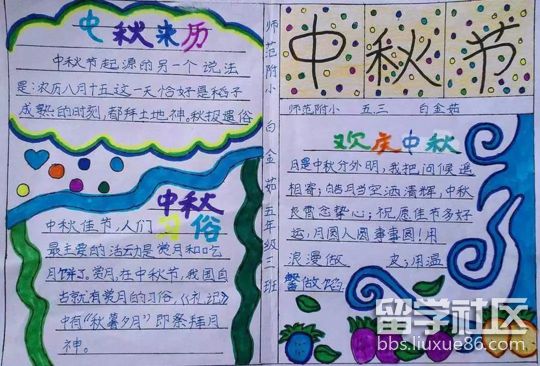 中秋来历
中秋节起源的另一个说法
是:农历八月十五这一天恰好是稻子
成熟的时刻,都拜土地神。秋报遗俗
中秋
习俗
中秋佳节,人们
最主要的活动是赏月和吃
月饼了。赏月,在中秋节,我国自
古就有赏月的习俗,《礼记》
中有“秋暮夕月”即祭拜月
神。
师范附小 白金茹 五年级三班
中秋节
师范附小 五.三 白金茹
欢庆中秋
月是中秋分外明,我把问候遥
相寄;皓月当空洒清辉,中秋
良宵念挚心;祝愿佳节多好
运,月圆人圆事事圆!用
浪漫做 皮,用温
馨做馅
留学社区
bbs.liuxue86.com